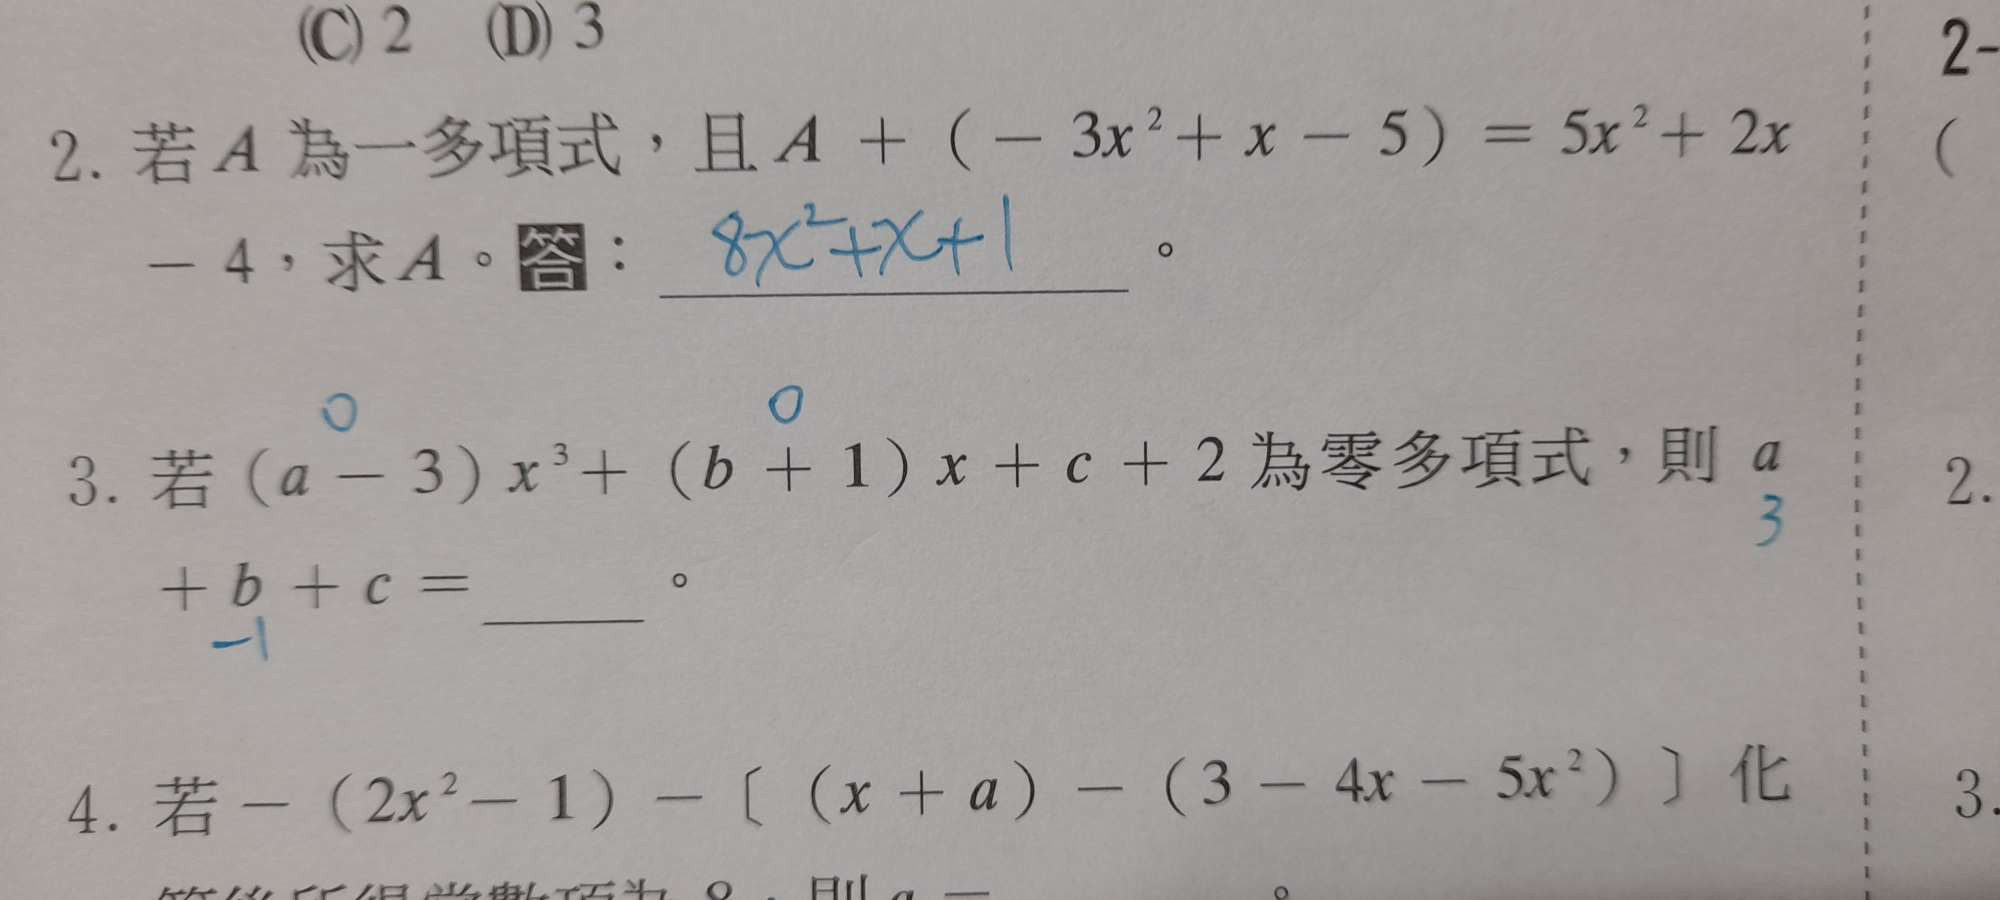 (C) 2 (D) 3
2. 若 A 為一多項式，且 A + ( − 3x² + x − 5 ) = 5x² + 2x
− 4，求 A。答： 8x²+x+1 。
0 0
3. 若 ( a − 3 ) x³ + ( b + 1 ) x + c + 2 為零多項式，則 a
3
+ b + c = ____ 。
−1
4. 若 − ( 2x² − 1 ) − 〔 ( x + a ) − ( 3 − 4x − 5x² ) 〕化
2-
(
2.
3.